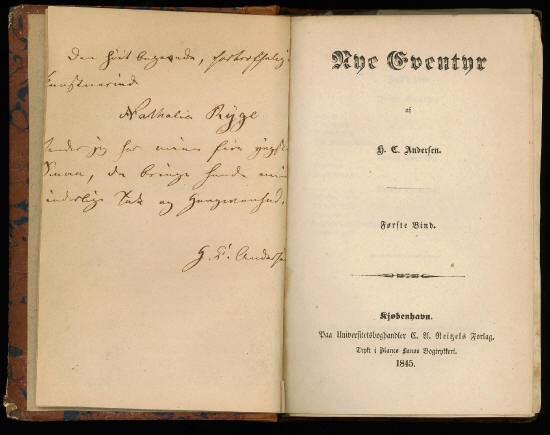 Den høit begavede, fortræffelige
Kunstnerinde
Nathalia Ryge
sender jeg her mine fire yngste
Smaa, de bringe hende min
inderlige Tak og Hengivenhed.
H. C. Andersen
Nye Eventyr
af
H. C. Andersen.
Første Bind.
Kjøbenhavn.
Paa Universitetsboghandler C. A. Reitzels Forlag.
Trykt i Bianco Lunos Bogtrykkeri.
1845.